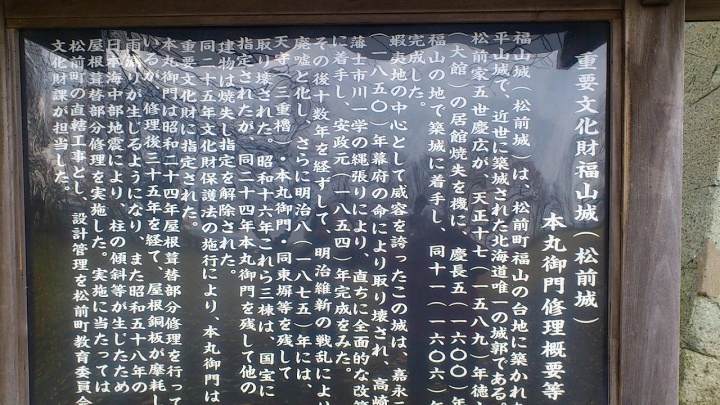 重要文化財福山城(松前城)
本丸御門修理概要等
福山城(松前城)は、松前町福山の台地に築かれ
平山城で、近世に築城された北海道唯一の城郭である。
松前家五世慶広が、天正十七(一五八九)年徳
(大館)の居館焼失を機に、慶長五(一六〇〇)年
福山の地で築城に着手し、同十一(一六〇六)年
完成した。
蝦夷地の中心として威容を誇ったこの城は、嘉永二
(一八五〇)年幕府の命により取り壊され、高崎
藩士市川一学の縄張りにより、直ちに全面的な改築
に着手し、安政元(一八五四)年完成をみた。
その後十数年を経ずして、明治維新の戦乱により
廃墟と化し、さらに明治八(一八七五)年には、
天守(三重櫓)・本丸御門・同東塀等を残して
取り壊された。昭和十六年これら三棟は、国宝に
指定されたが、同二十四年本丸御門を残して他の
建物は焼失し指定を解除された。
同二十五年文化財保護法の施行により、本丸御門は
重要文化財に指定された。
本丸御門は昭和二十四年屋根葺替部分修理を行って
いるが、修理後三十五年を経て、屋根銅板が摩耗し
雨漏りが生じるようになり、また昭和五十八年の
日本海中部地震により、柱の傾斜等が生じたため
屋根葺替部分修理を実施した。実施に当たっては
松前町の直轄工事とし、設計管理を松前町教育委員会
文化財課が担当した。